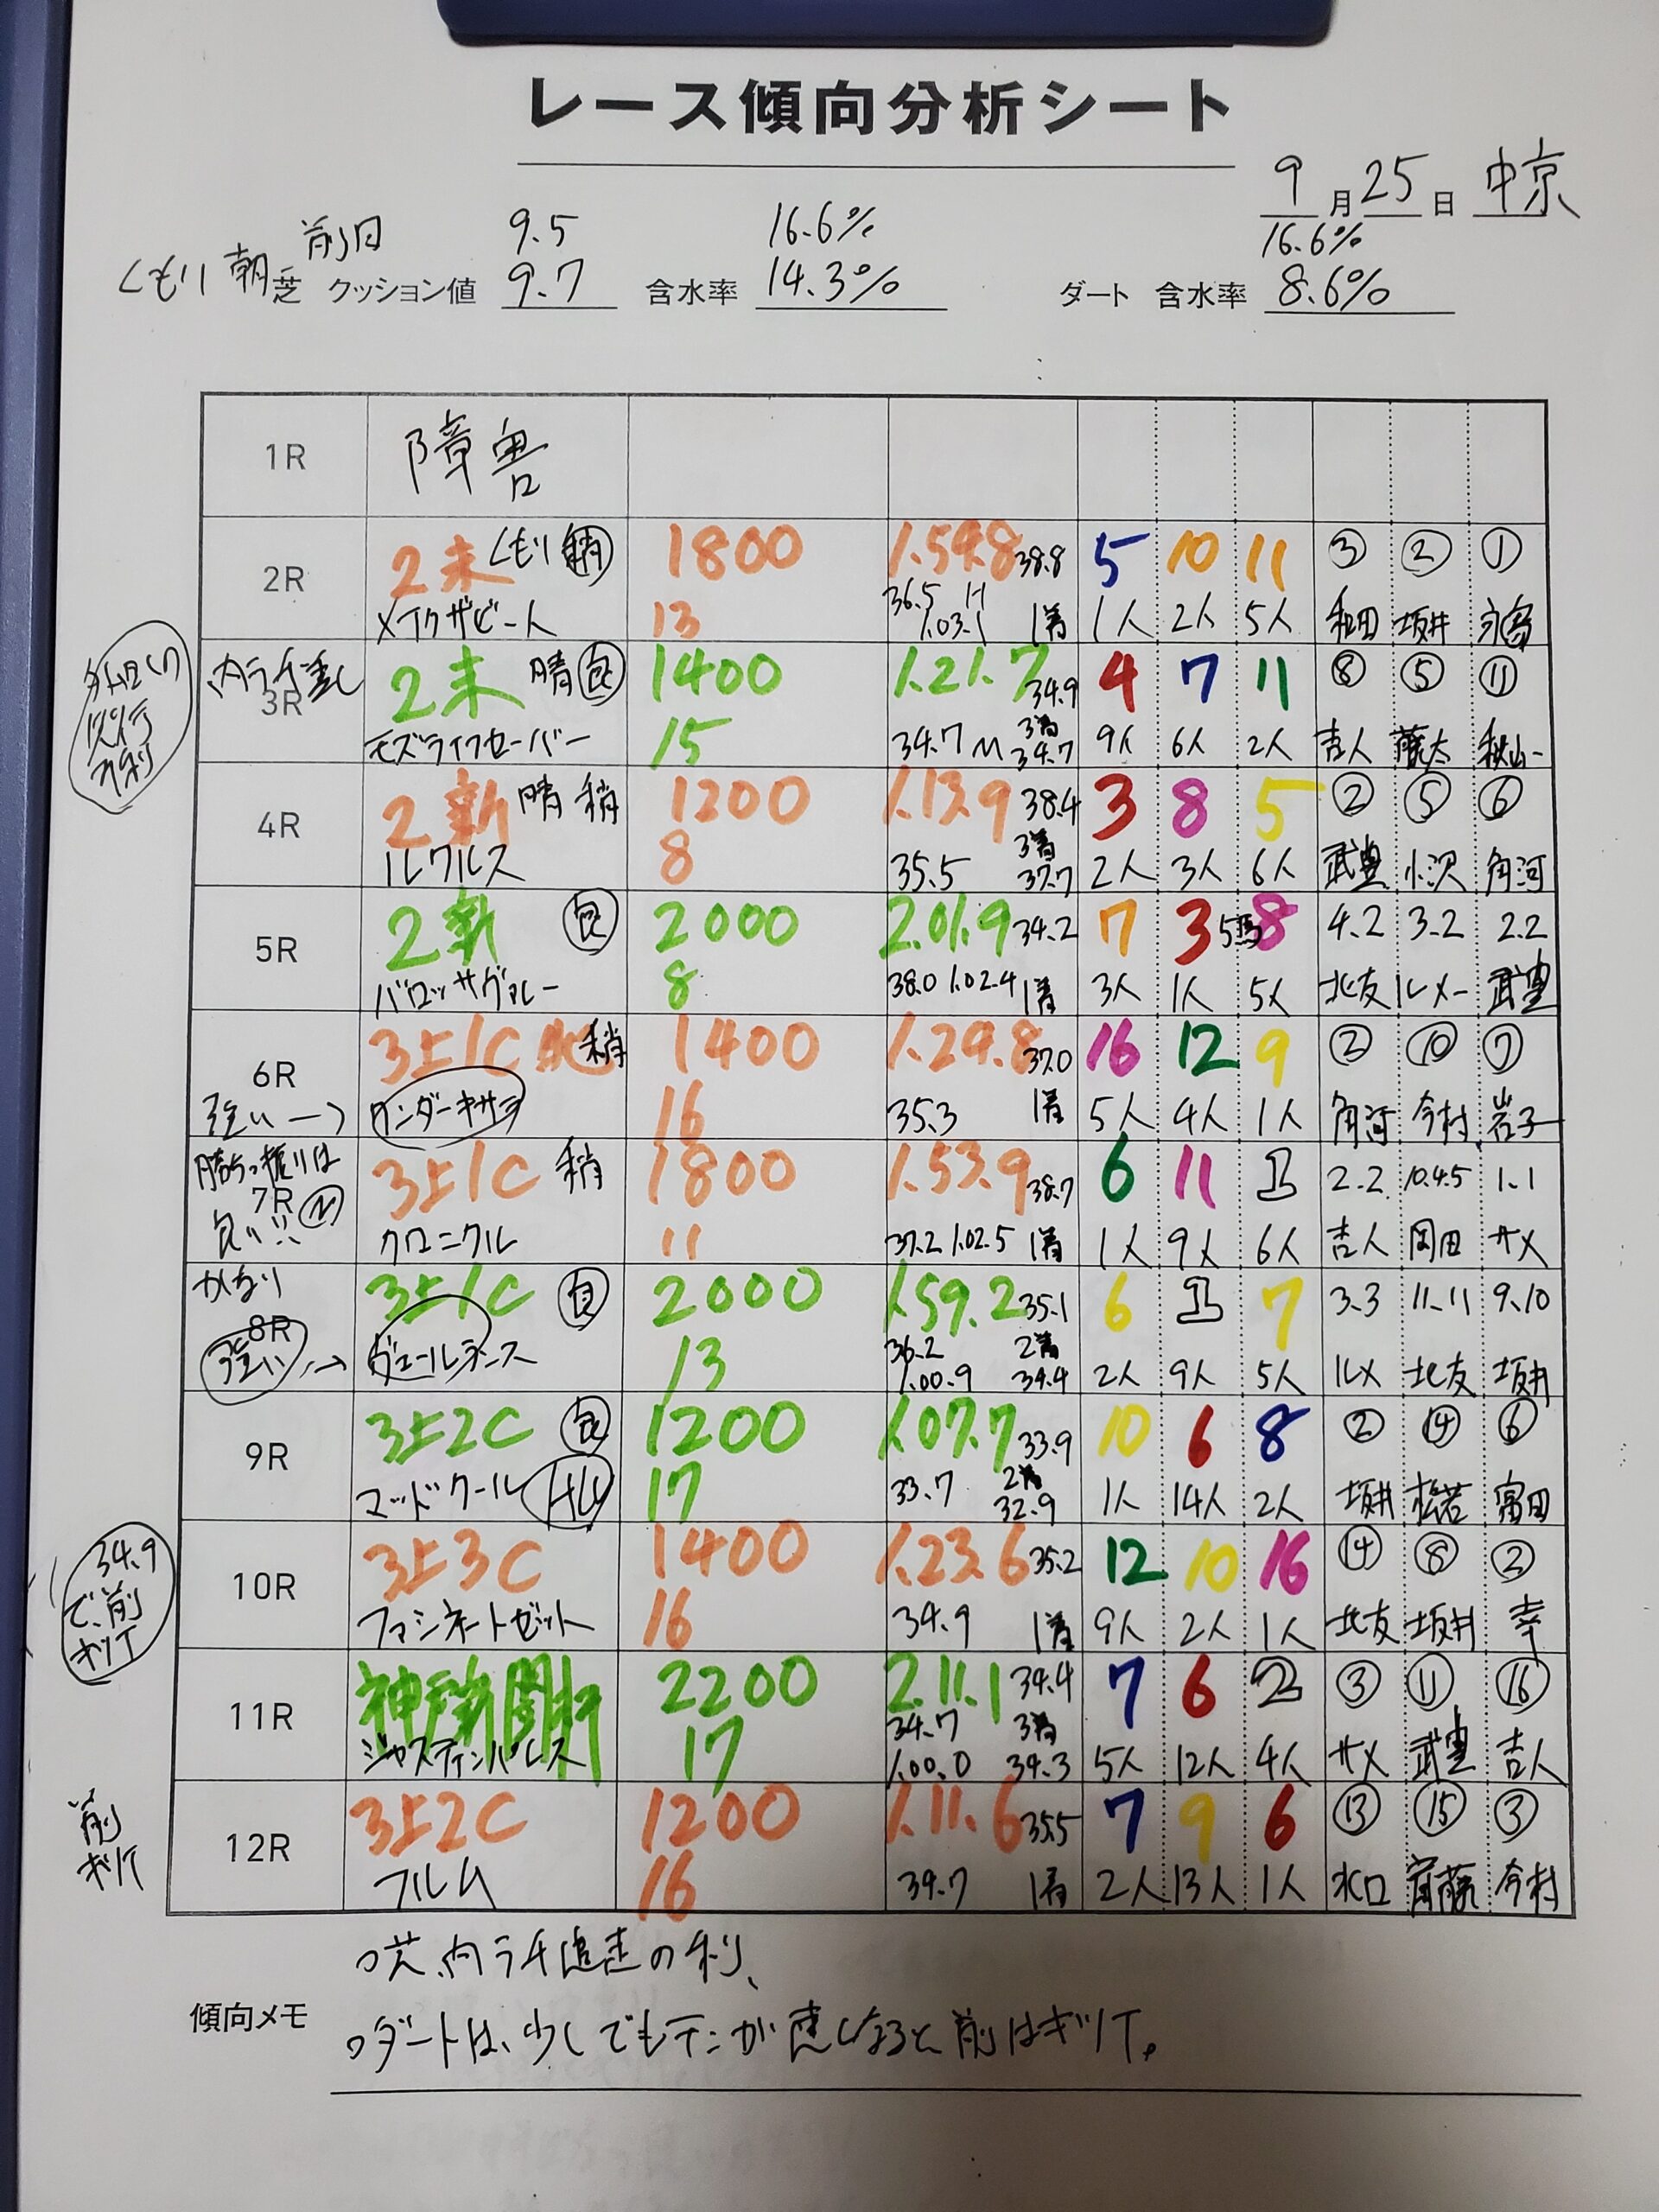 レース傾向分析シート
9月25日 中京
前日 9.5 16.6% 16.6%
くもり 朝 芝 クッション値 9.7 含水率 14.3% ダート 含水率 8.6%
1R 障害
2R 2未 くもり 稍 1800 1.59.8 38.8 5 10 11 ③ ② ①
メイクザビート 13 36.5 H 1.03.1 1着 1人 2人 5人 和田 坂井 永島
内ラチ差し
3R 2未 晴 良 1400 1.21.7 34.9 4 7 11 ⑧ ⑤ ⑪
モズライフセーバー 15 34.7 M 3着 34.7 9人 6人 2人 吉人 藤太 秋山一
4R 2新 晴 稍 1200 1.13.9 38.4 3 8 5 ② ⑤ ⑥
ルクルス 8 35.5 3着 37.7 2人 3人 6人 武豊 小沢 角河
5R 2新 良 2000 2.01.9 34.2 7 3 5馬 8 4.2 3.2 2.2
バロッサヴァレー 8 38.0 1.02.4 1着 3人 1人 5人 北友 ルメー 武豊
6R 3上1C 稍 1400 1.24.8 37.0 16 12 9 ② ⑩ ⑦
強い→ ワンダーキサラ 16 35.3 1着 5人 4人 1人 角河 今村 岩子
勝ちっ振りは
7R 3上1C 稍 1800 1.53.9 38.7 6 11 1 2.2 10.4.5 1.1
良い!! M クロニクル 11 37.2 1.02.5 1着 1人 9人 6人 吉人 岡田 ルメ
かなり
8R 3上1C 良 2000 1.59.2 35.1 6 1 7 3.3 11.11 9.10
強い→ ヴェールランス 13 36.2 1.00.9 2着 34.4 2人 9人 5人 ルメ 北友 坂井
9R 3上2C 良 1200 1.07.7 33.9 10 6 8 ② ⑭ ⑥
マッドクール HL 17 33.7 2着 32.9 1人 14人 2人 坂井 松若 富田
34.9
で、前
キツイ
10R 3上3C 1400 1.23.6 35.2 12 10 16 ⑭ ⑧ ②
ファシネートゼット 16 34.9 1着 9人 2人 1人 北友 坂井 幸
11R 神戸新聞杯 2200 2.11.1 34.4 7 6 2 ③ ⑪ ⑯
ジャスティンパレス 17 34.7 1.00.0 3着 34.3 5人 12人 4人 ルメ 武豊 吉人
前
キツイ
12R 3上2C 1200 1.11.6 35.5 7 9 6 ⑬ ⑮ ③
フルム 16 34.7 1着 2人 13人 1人 水口 斎藤 今村
○芝、内ラチ追走の利、
傾向メモ
○ダートは、少しでもテンが速くなると前はキツイ。